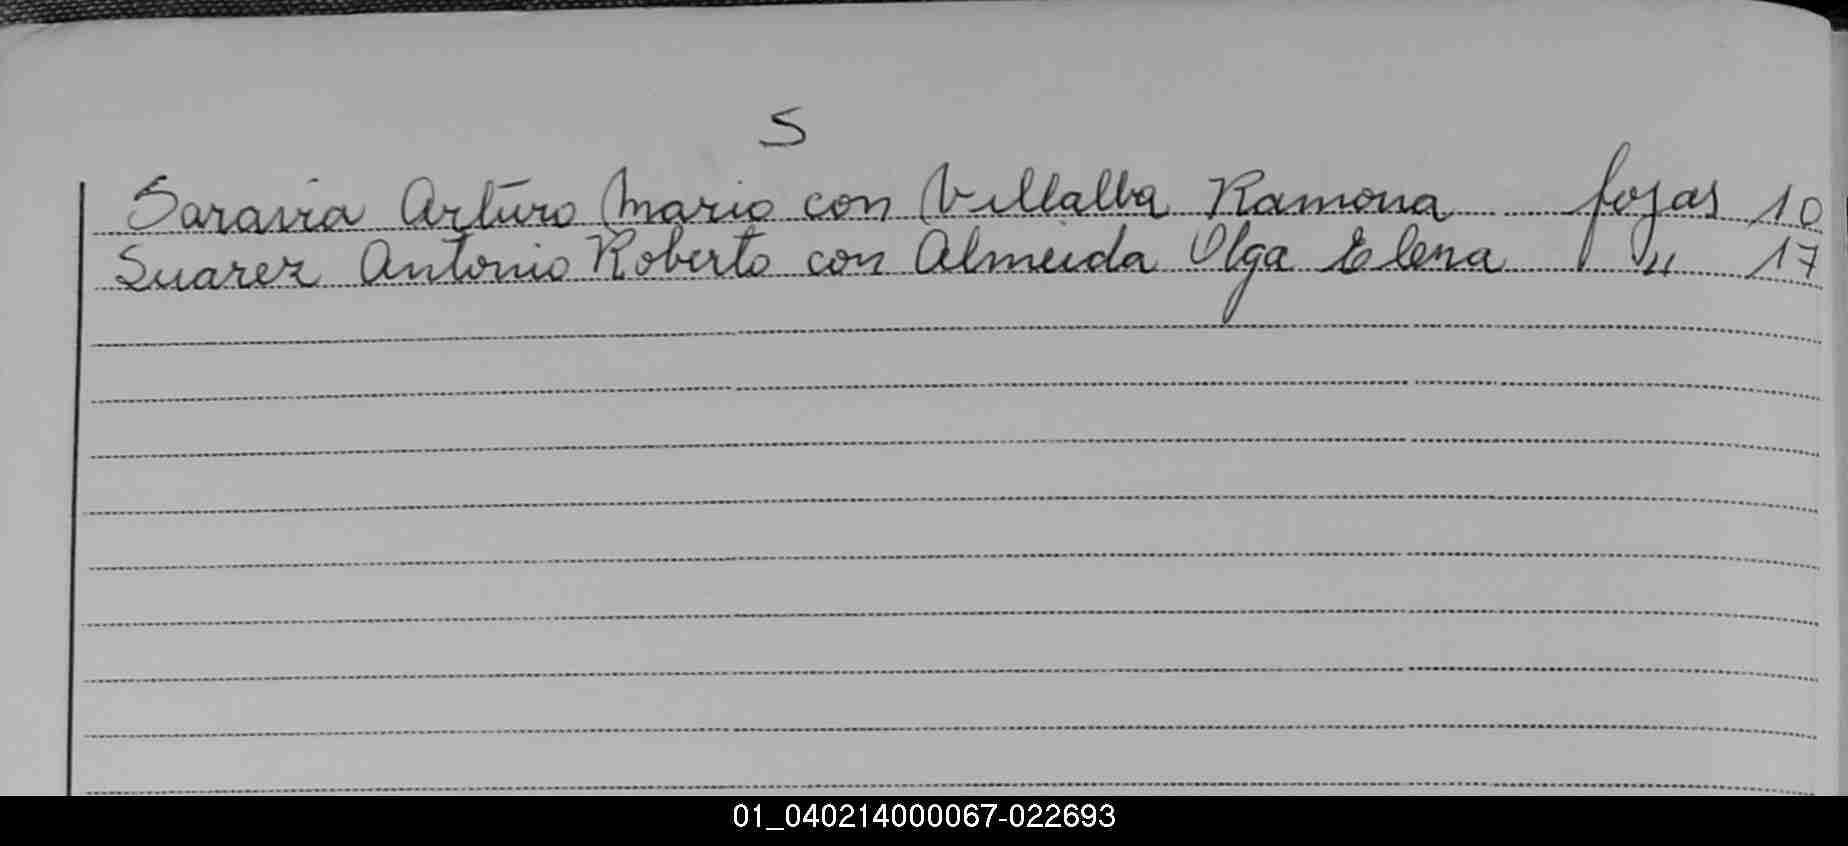 S
Saravia Arturo Mario con Villalba Ramona fojas 10
Suarez Antonio Roberto con Almeida Olga Elena " 17
01_040214000067-022693